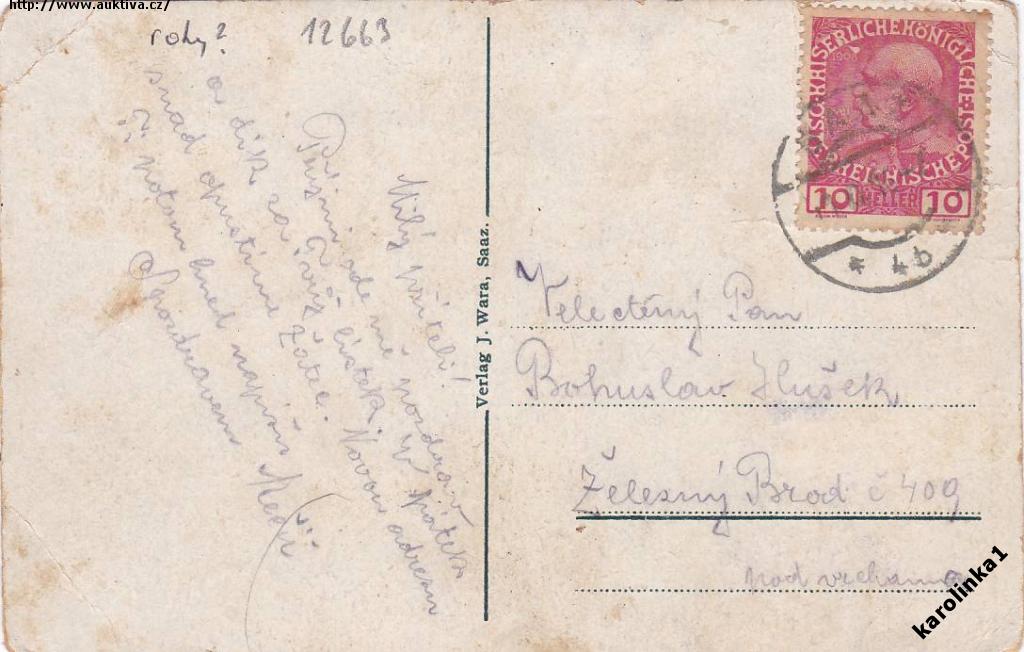 http://www.auktiva.cz/
rohy?
12663
Milý příteli!
Přijmi ode mne pozdrav
a dík za Tvůj lístek. V pátek
snad opustíme Žatec. Novou adresu
Ti potom hned napíši
S pozdravem
Verlag J. Wara, Saaz.
KAISERLICHE KÖNIGLICHE
ÖSTERREICHISCHE POST
1908
10 HELLER 10
* 4b
Velectěný Pan
Bohuslav Hušek
Železný Brod č 409
pod vrchama
karolinka1